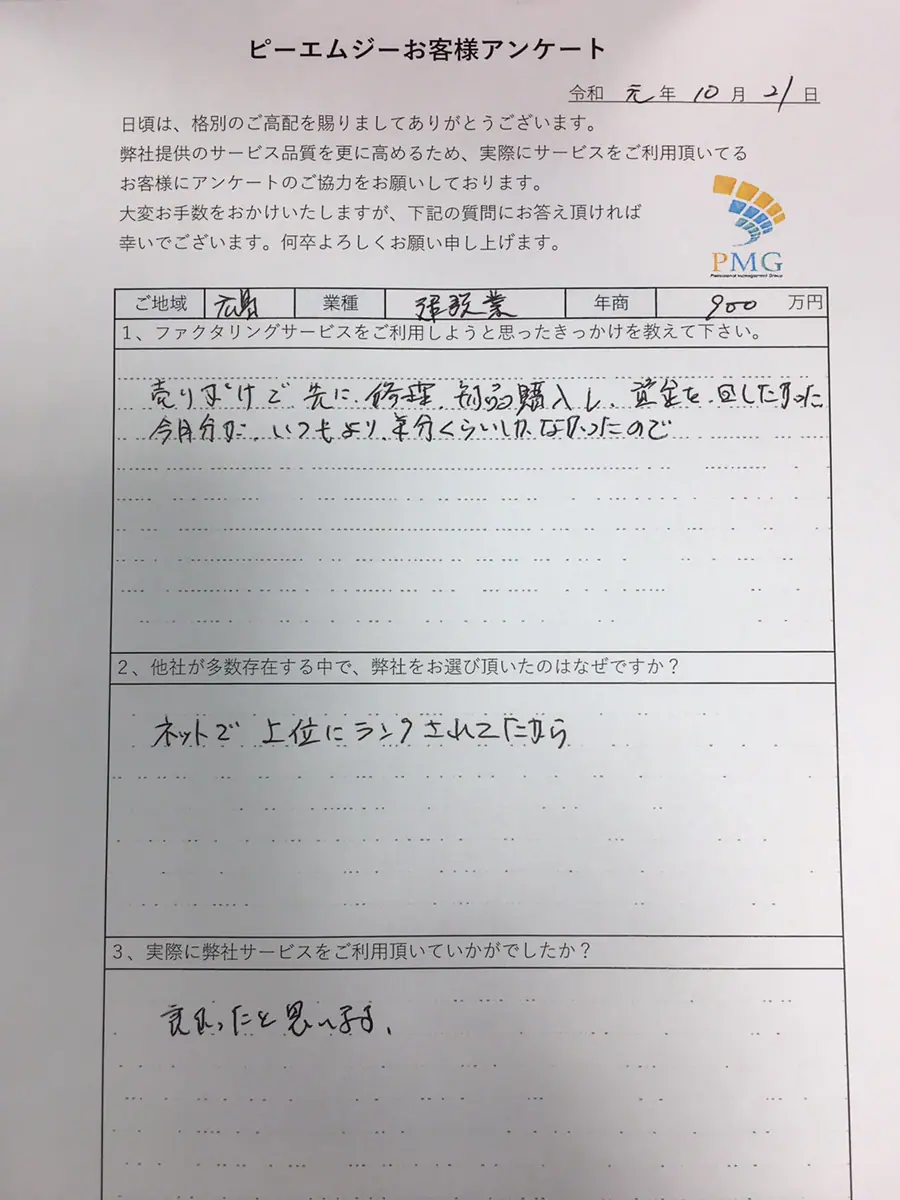 ピーエムジーお客様アンケート
令和 元 年 10 月 21 日
日頃は、格別のご高配を賜りましてありがとうございます。
弊社提供のサービス品質を更に高めるため、実際にサービスをご利用頂いてる
お客様にアンケートのご協力をお願いしております。
大変お手数をおかけいたしますが、下記の質問にお答え頂ければ
幸いでございます。何卒よろしくお願い申し上げます。
PMG
Professional Management Group
ご地域 広島 業種 建設業 年商 900 万円
1、ファクタリングサービスをご利用しようと思ったきっかけを教えて下さい。
売りかけで先に、修理、部品購入し、資金を回したかった
今月分が、いつもより、半分くらいしかなかったので
2、他社が多数存在する中で、弊社をお選び頂いたのはなぜですか？
ネットで上位にランクされてたから
3、実際に弊社サービスをご利用頂いていかがでしたか？
良かったと思います。